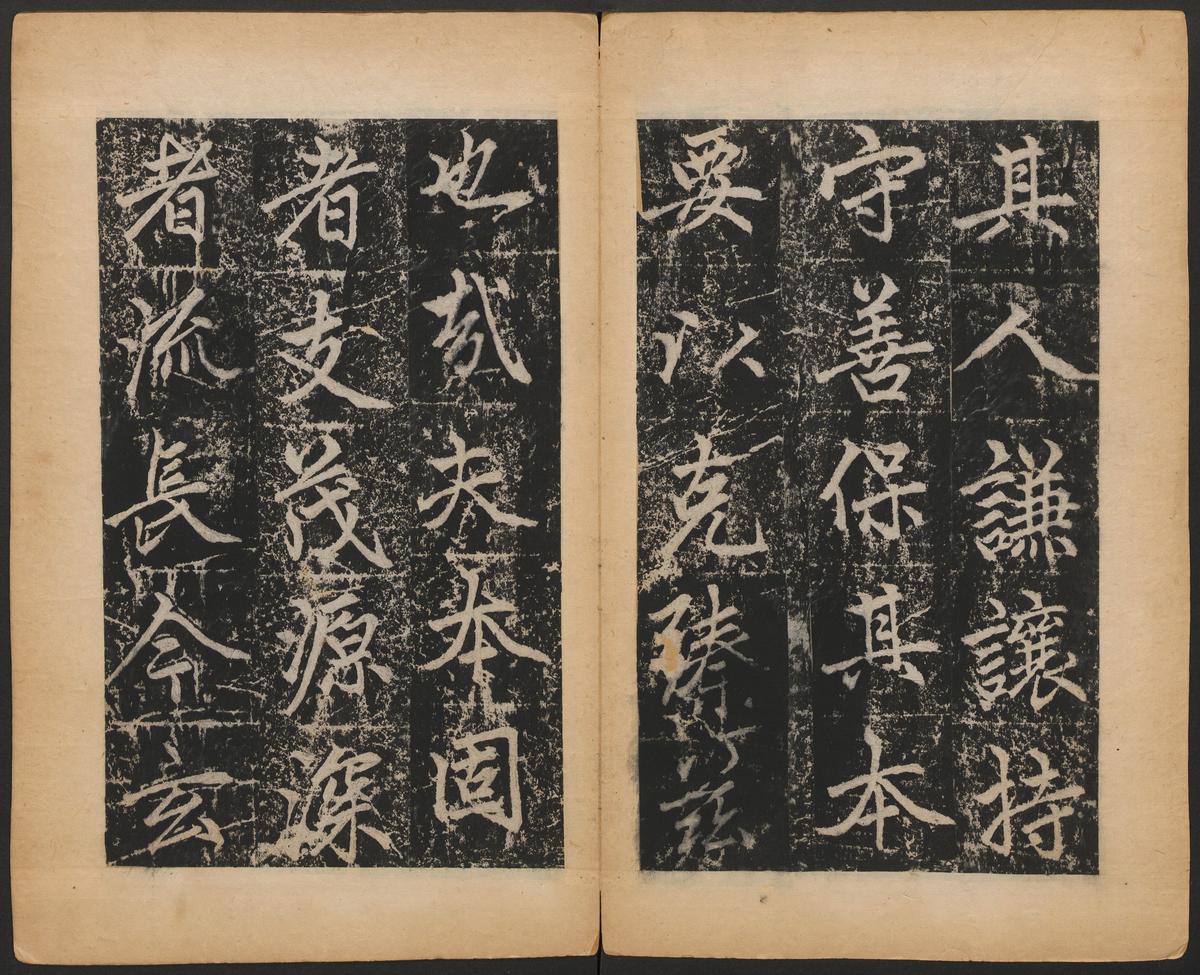 其人謙讓持
守善保其本
要以克臻茲
也哉夫本固
者支茂源深
者流長今玄